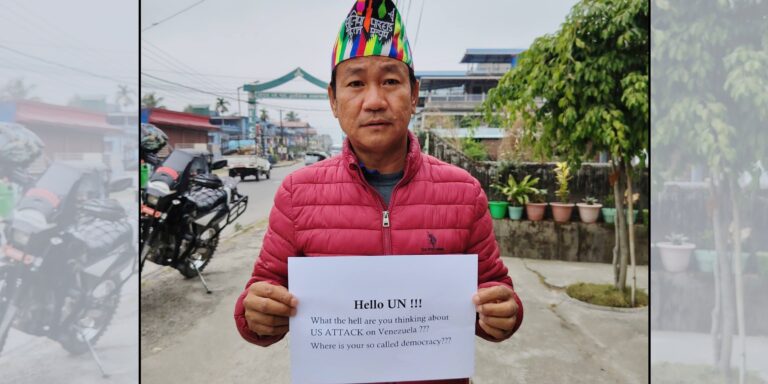 Hello UN !!!
What the hell are you thinking about
US ATTACK on Venezuela ???
Where is your so called democracy???